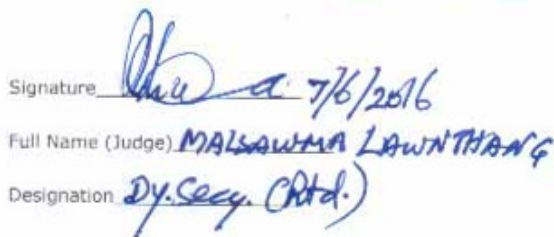 Signature 7/6/2016
Full Name (Judge) MALSAWMA LAWNTHANG
Designation Dy. Secy. (Rtd.)